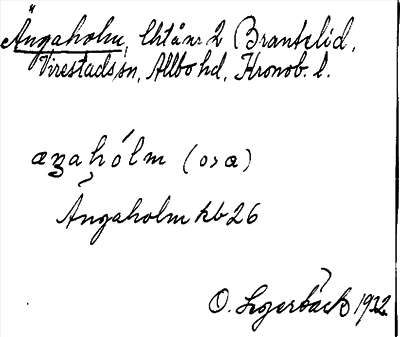 Ängaholm, lht å nr 2 Brantelid,
Virestads sn, Allbo hd, Kronob. l.
aŋahólm (osa)
Ängaholm kb 26
O. Segerbäck 1932